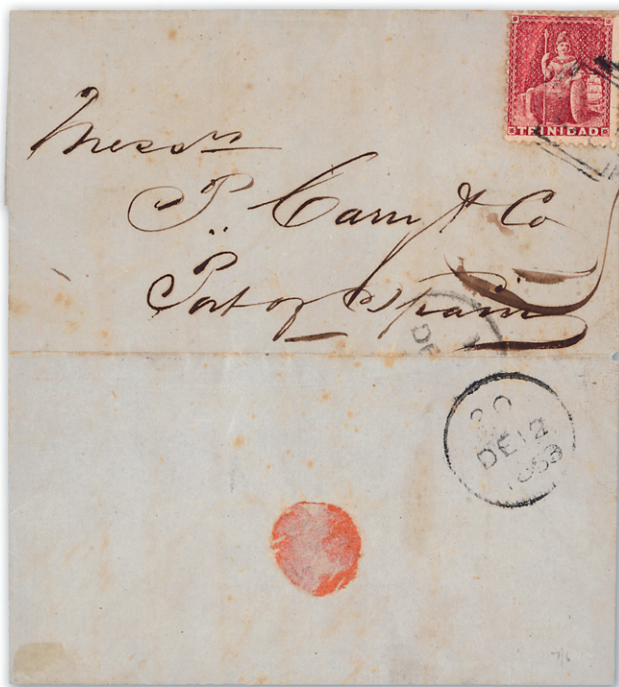 TRINIDAD
Messrs
P. Carry & Co
Port of Spain
DE
20
DE 12
1863
7/6